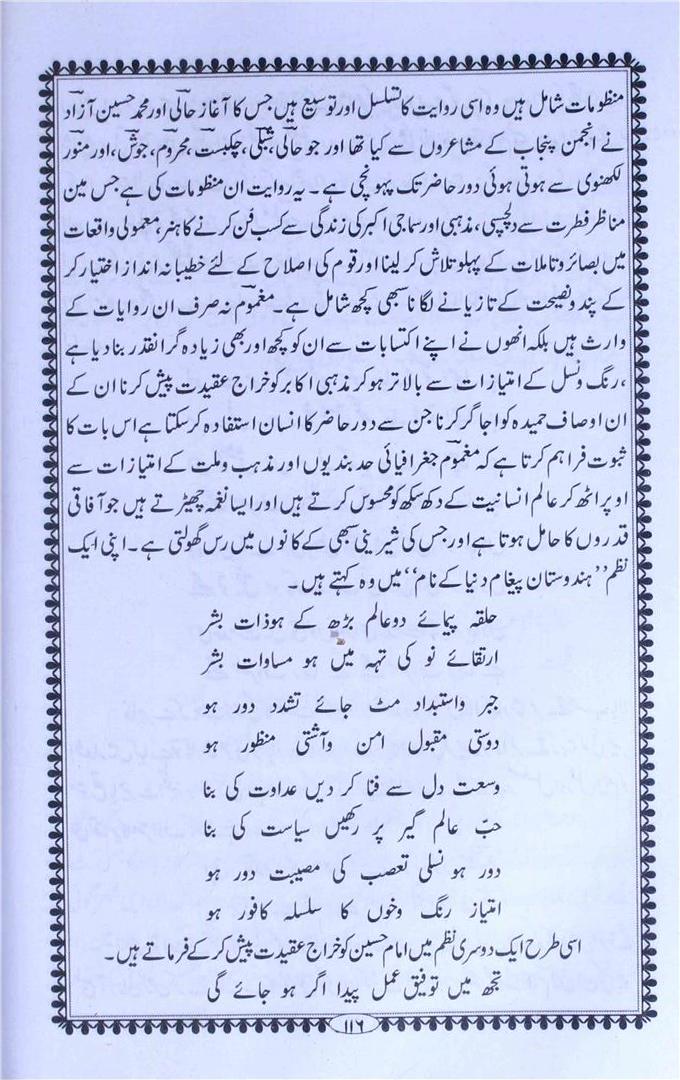 منظومات شامل ہیں وہ اسی روایت کا تسلسل اور توسیع ہیں جس کا آغاز حالی اور محمد حسین آزاد
نے انجمن پنجاب کے مشاعروں سے کیا تھا اور جو حالی، شبلی، چکبست، محروم، جوش، اور منور
لکھنوی سے ہوتی ہوئی دور حاضر تک پہونچی ہے۔ یہ روایت ان منظومات کی ہے جس مین
مناظر فطرت سے دلچسپی، مذہبی اور سماجی اکبر کی زندگی سے کسب فن کرنے کا ہنر، معمولی واقعات
میں بصائر و تاملات کے پہلو تلاش کر لینا اور قوم کی اصلاح کے لئے خطیبانہ انداز اختیار کر
کے پند و نصیحت کے تازیانے لگانا سبھی کچھ شامل ہے۔ مغموم نہ صرف ان روایات کے
وارث ہیں بلکہ انھوں نے اپنے اکتسابات سے ان کو کچھ اور بھی زیادہ گرانقدر بنا دیا ہے
،رنگ و نسل کے امتیازات سے بالاتر ہو کر مذہبی اکابر کو خراج عقیدت پیش کرنا ان کے
ان اوصاف حمیدہ کو اجاگر کرنا جن سے دور حاضر کا انسان استفادہ کر سکتا ہے اس بات کا
ثبوت فراہم کرتا ہے کہ مغموم جغرافیائی حد بندیوں اور مذہب و ملت کے امتیازات سے
اوپر اٹھ کر عالم انسانیت کے دکھ سکھ کو محسوس کرتے ہیں اور ایسا نغمہ چھیڑتے ہیں جو آفاقی
قدروں کا حامل ہوتا ہے اور جس کی شیرینی سبھی کے کانوں میں رس گھولتی ہے۔ اپنی ایک
نظم ”ہندوستان پیغام دنیا کے نام“ میں وہ کہتے ہیں۔
حلقہ پیمائے دو عالم بڑھ کے ہو ذات بشر
ارتقائے نو کی تہہ میں ہو مساوات بشر
جبر و استبداد مٹ جائے تشدد دور ہو
دوستی مقبول امن و آشتی منظور ہو
وسعت دل سے فنا کر دیں عداوت کی بنا
حبّ عالم گیر پر رکھیں سیاست کی بنا
دور ہو نسلی تعصب کی مصیبت دور ہو
امتیاز رنگ و خوں کا سلسلہ کافور ہو
اسی طرح ایک دوسری نظم میں امام حسین کو خراج عقیدت پیش کر کے فرماتے ہیں۔
تجھ میں توفیق عمل پیدا اگر ہو جائے گی
۱۱۶